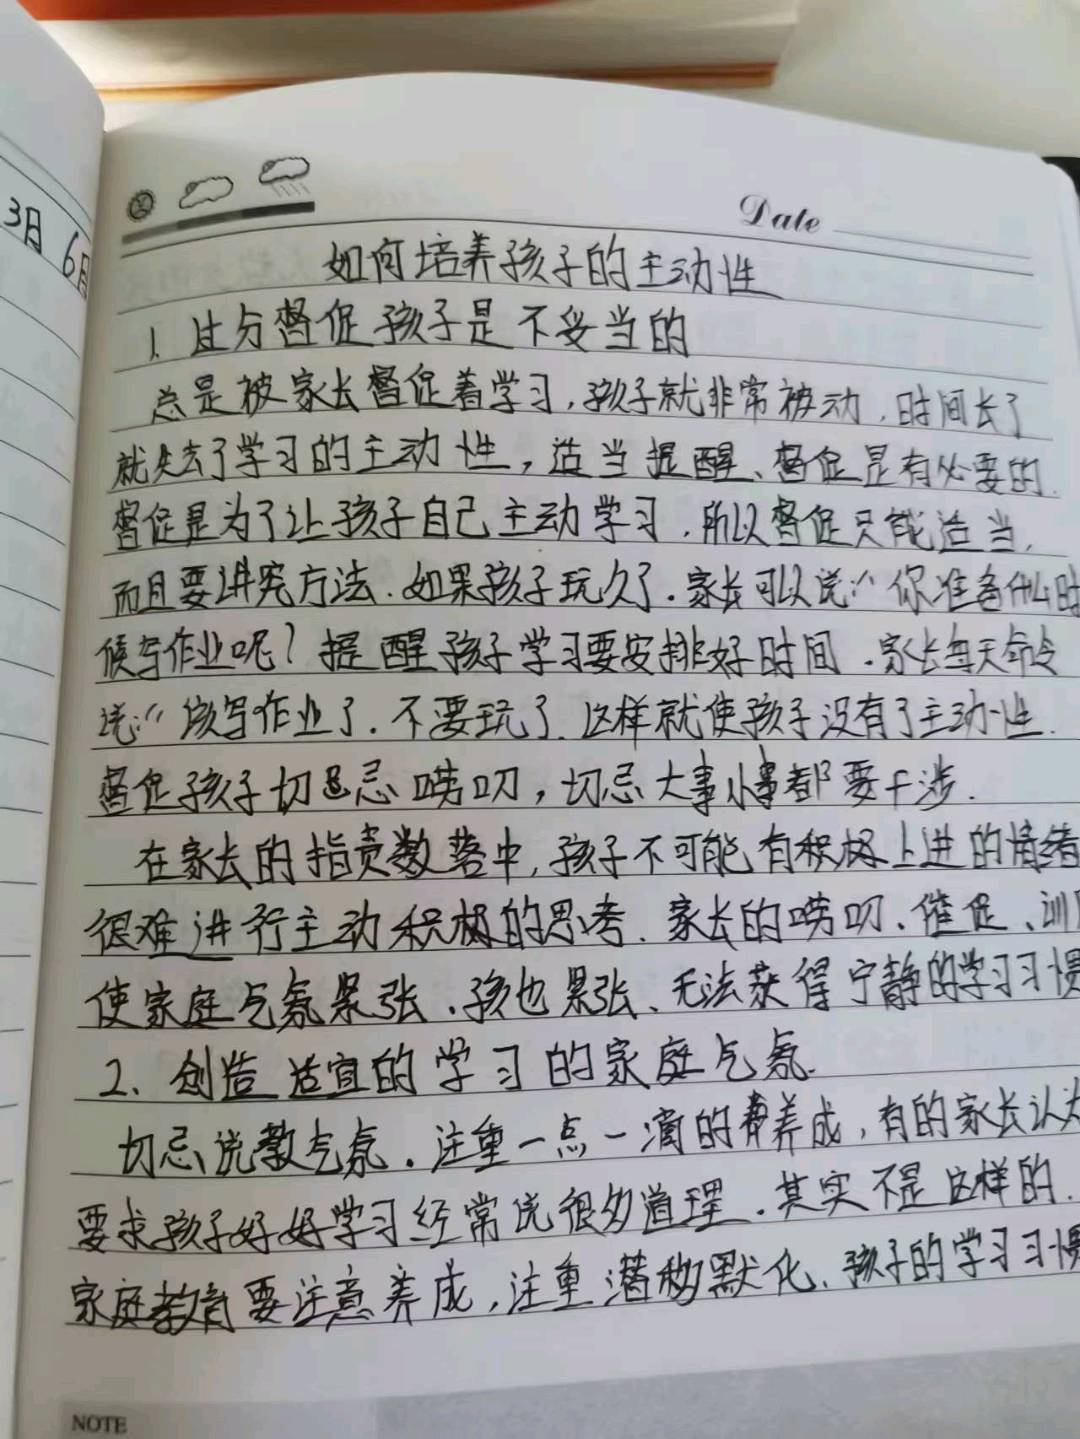 3日 6月
Date
如何培养孩子的主动性
1. 过分督促孩子是不妥当的
总是被家长督促着学习,孩子就非常被动,时间长了
就失去了学习的主动性,适当提醒、督促是有必要的.
督促是为了让孩子自己主动学习,所以督促只能适当,
而且要讲究方法.如果孩子玩久了.家长可以说:“你准备什么时
候写作业呢?提醒孩子学习要安排好时间.家长每天命令
说:“该写作业了.不要玩了.这样就使孩子没有了主动性.
督促孩子切忌唠叨,切忌大事小事都要干涉.
在家长的指责数落中,孩子不可能有积极上进的情绪
很难进行主动积极的思考.家长的唠叨、催促、训
使家庭气氛紧张.孩也紧张、无法获得宁静的学习习惯
2、创造适宜的学习的家庭气氛.
切忌说教气氛.注重一点一滴的养成,有的家长认为
要求孩子好好学习经常说很多道理.其实不是这样的.
家庭教育要注意养成,注重潜移默化、孩子的学习习惯
NOTE